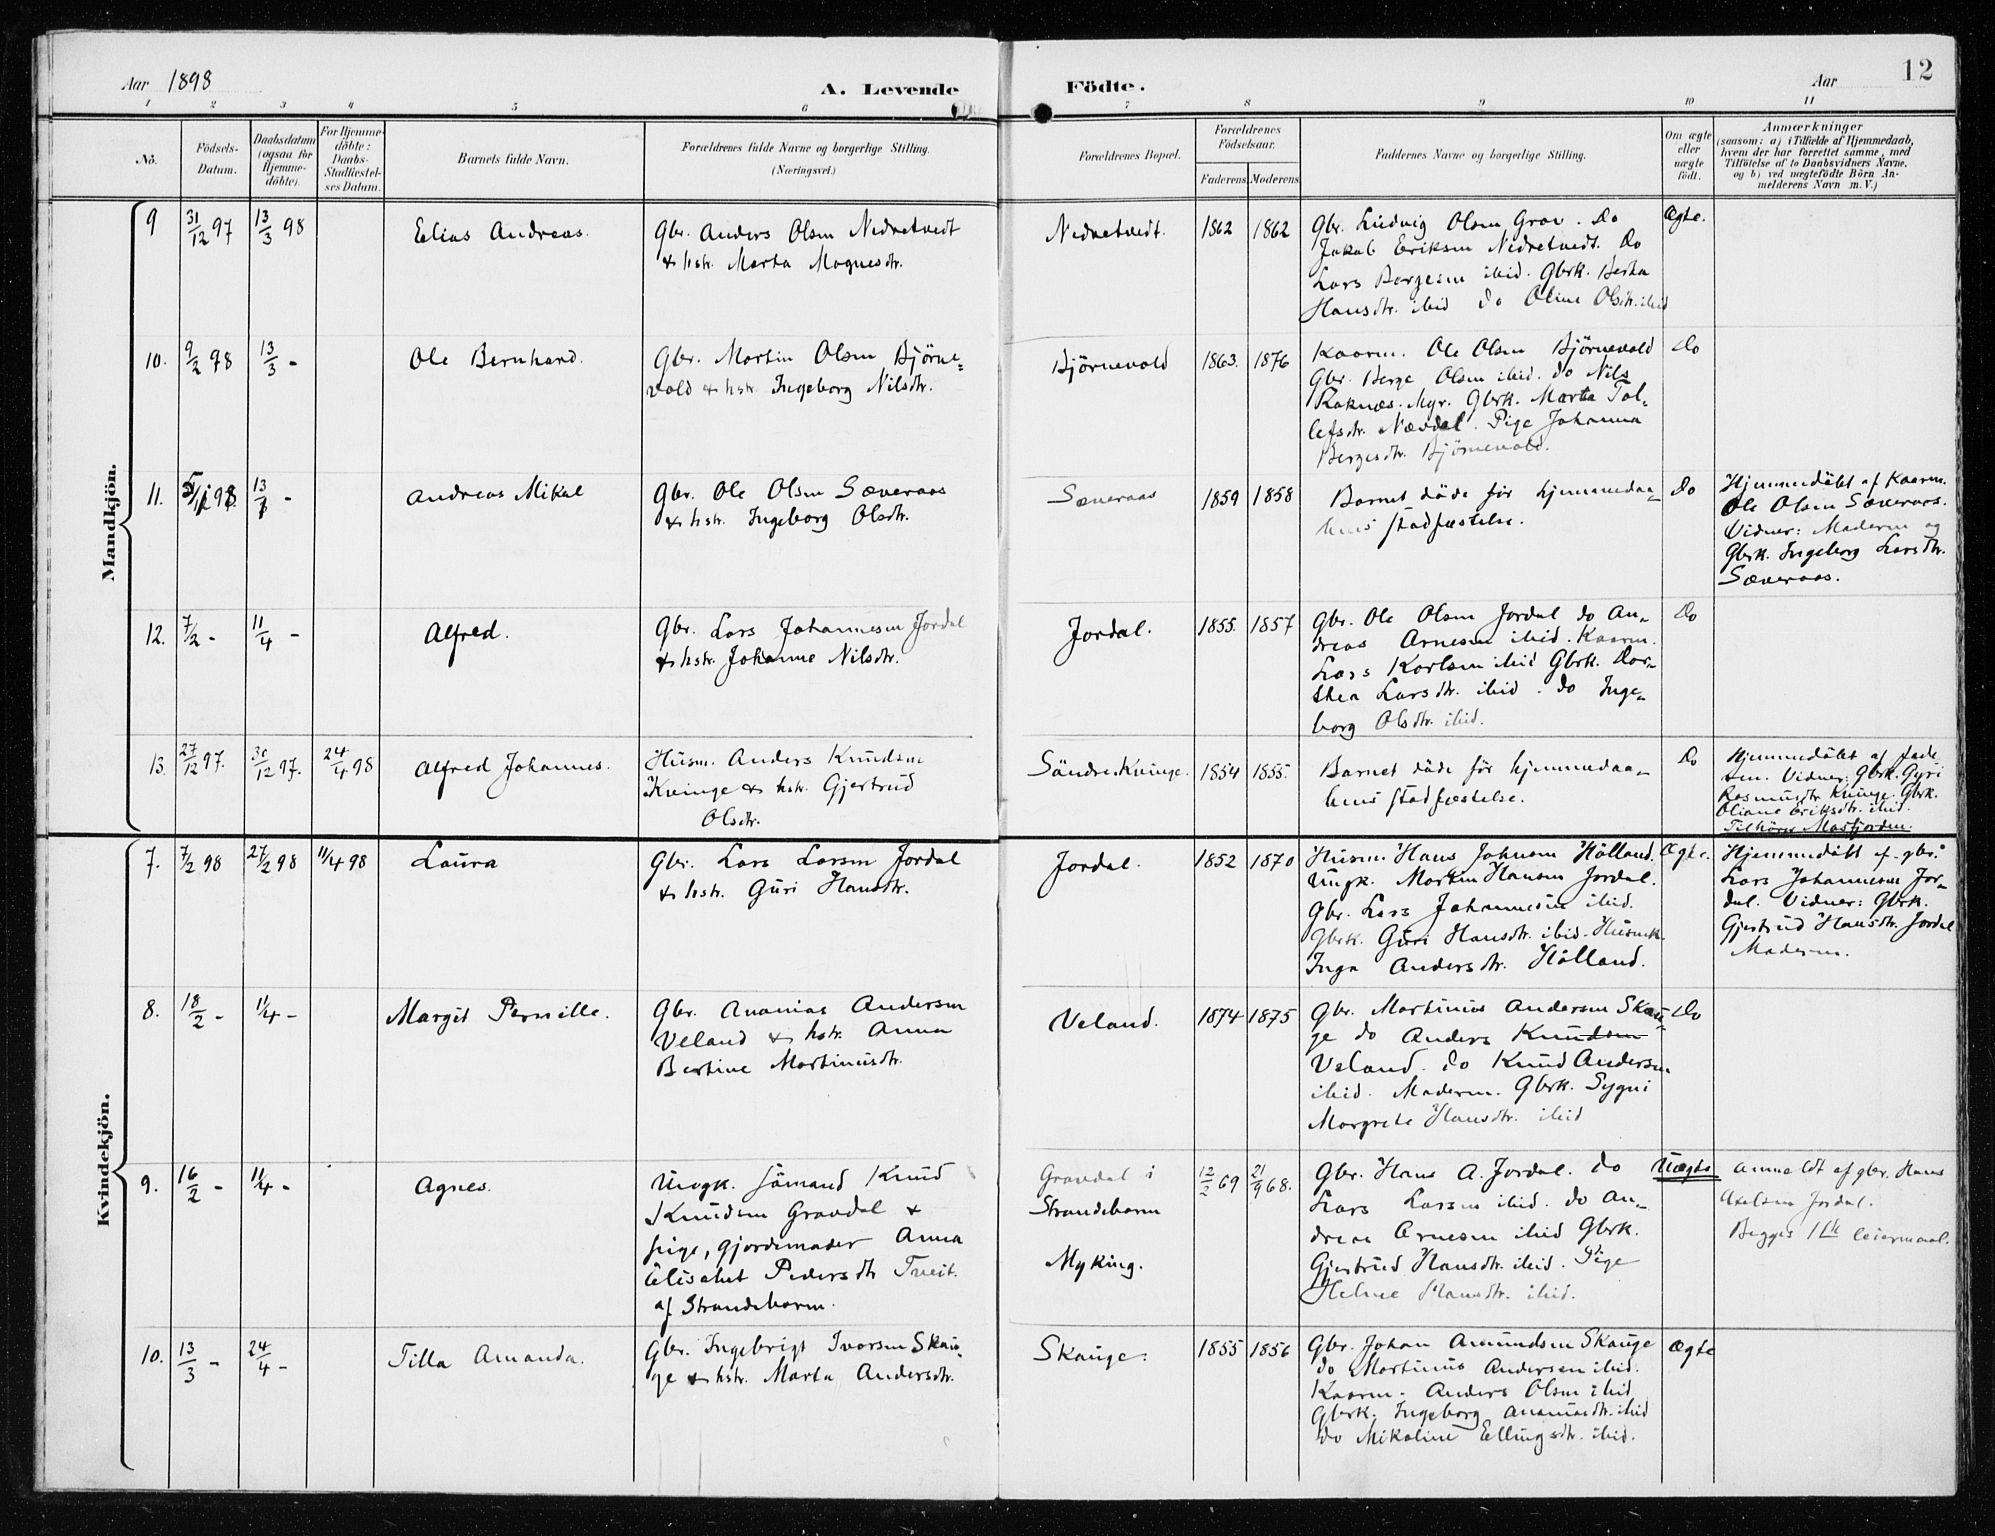 Aar 1898
A. Levende
Födte.
Aar
12
1 2 3 4 5 6 7 8 9 10 11
No.
Födsels-
Datum.
Daabsdatum
(ogsaa for
Hjemme-
döbte).
For Hjemme-
döbte:
Daabs-
Stadfæstel-
ses Datum.
Barnets fulde Navn.
Forældrenes fulde Navne og borgerlige Stilling.
(Næringsvei.)
Forældrenes Bopæl.
Forældrenes
Födselsaar.
Faderens. Moderens.
Faddernes Navne og borgerlige Stilling.
Om ægte
eller
uægte
födt.
Anmærkninger
(saasom: a) i Tilfælde af Hjemmedaab,
hvem der har forrettet samme, med
Tilföielse af to Daabsvidners Navne,
og b) ved uægtefödte Börn An-
melderens Navn m. V.)
Mandkjön.
9 31/12 97 13/3 98
Elias Andreas.
Gbr. Anders Olsen Nedretvedt
& hstr. Marta Magnesdtr.
Nedretvedt.
1862 1862
Gbr. Ludvig Olsen Grov. Do
Jakob Eriksen Nedretvedt. Do
Lars Børgesen ibid. Gbrk. Berta
Hansdtr. ibid do Oline Olsdtr. ibid
Ægte.
10. 9/2 98 13/3 -
Ole Bernhard.
Gbr. Martin Olsen Bjørne-
vold & hstr. Ingeborg Nilsdtr.
Bjørnevold
1863. 1876
Kaarm. Ole Olsen Bjørnevold
Gbr. Berge Olsen ibid. do Nils
Raknæs. Myr. Gbrk. Marta Tol-
lefsdr. Nævdal. Pige Johanna
Bergesdtr. Bjørnevold.
Do
11. 98 13/3 -
Andreas Mikal
Gbr. Ole Olsen Sæveraas
& hstr. Ingeborg Olsdtr.
Sæveraas
1859 1858
Barnet döde för hjemmedaa-
bens stadfæstelse.
Do
Hjemmedöbt af Kaarm.
Ole Olsen Sæveraas.
Vidner: Moderen og
Gbrk. Ingeborg Larsdtr.
Sæveraas.
12. 7/2 - 11/4 -
Alfred.
Gbr. Lars Johannesen Jordal
& hstr. Johanne Nilsdtr.
Jordal.
1855. 1857
Gbr. Ole Olsen Jordal do An-
dreas Arnesen ibid. Kaarm.
Lars Karlsen ibid Gbrk. Dor-
thea Larsdtr. ibid. do Inge-
borg Olsdtr. ibid.
Do
13. 27/12 97. 30/12 97. 24/4 98
Alfred Johannes.
Husm. Anders Knudsen
Kvinge & hstr. Gjertrud
Olsdtr.
Söndre Kvinge.
1854 1855.
Barnet döde för hjemmedaa-
bens stadfæstelse.
Do
Hjemmedöbt af fade
ren. Vidner: Gbrk. Gyri
Rasmusdtr Kvinge. Gbrk.
Oliane Eriksdtr. ibid.
Tilhörer Masfjorden.
Kvindekjön.
7. 7/2 98 27/2 98 11/4 98
Laura
Gbr. Lars Larsen Jordal
& hstr. Guri Hansdtr.
Jordal.
1852 1870
Husm. Hans Johnsen Hölland.
Ungk. Morten Hansen Jordal.
Gbr. Lars Johannesen ibid.
Gbrk. Guri Hansdtr. ibid. Husmk.
Inga Andersdtr. Hölland.
Ægte.
Hjemmedöbt af gbr.
Lars Johannesen Jor-
dal. Vidner: Gbrk.
Gjertrud Hansdtr. Jordal
Moderen.
8. 18/2 - 11/4 -
Margit Pernille.
Gbr. Ananias Andersen
Veland & hstr. Anna
Bertine Martinusdtr.
Veland.
1874 1875
Gbr. Martinus Andersen Skau-
ge do Anders Knudsen
Veland. do Knud Andersen
ibid. Moderen. Gbrk. Sygni
Margrete Hansdtr. ibid
Do
9. 16/2 - 11/4 -
Agnes.
Ungk. Sömand Knud
Knudsen Gravdal &
pige, gjordemoder Anna
Elisabet Pedersdtr Tveit.
af Strandebarm.
Gravdal i
Strandebarm
Myking.
12/2 69 21/9 68.
Gbr. Hans A. Jordal. do
Lars Larsen ibid. do An-
dreas Arnesen ibid Gbrk.
Gjertrud Hansdtr. ibid. Pige
Helene Hansdtr. ibid.
Uægte
Anmeldt af gbr. Hans
Axelsen Jordal.
Begges 1ste leiermaal.
10. 13/3 - 24/4 -
Tilla Amanda.
Gbr. Ingebrigt Ivarsen Skau-
ge & hstr. Marta Andersdtr.
Skauge.
1855 1856
Gbr. Johan Amundsen Skauge
do Martinus Andersen ibid.
Kaarm. Anders Olsen ibid
Gbrk. Ingeborg Ananiasdtr. ibid
Do Mikaline Ellingsdtr. ibid.
Ægte